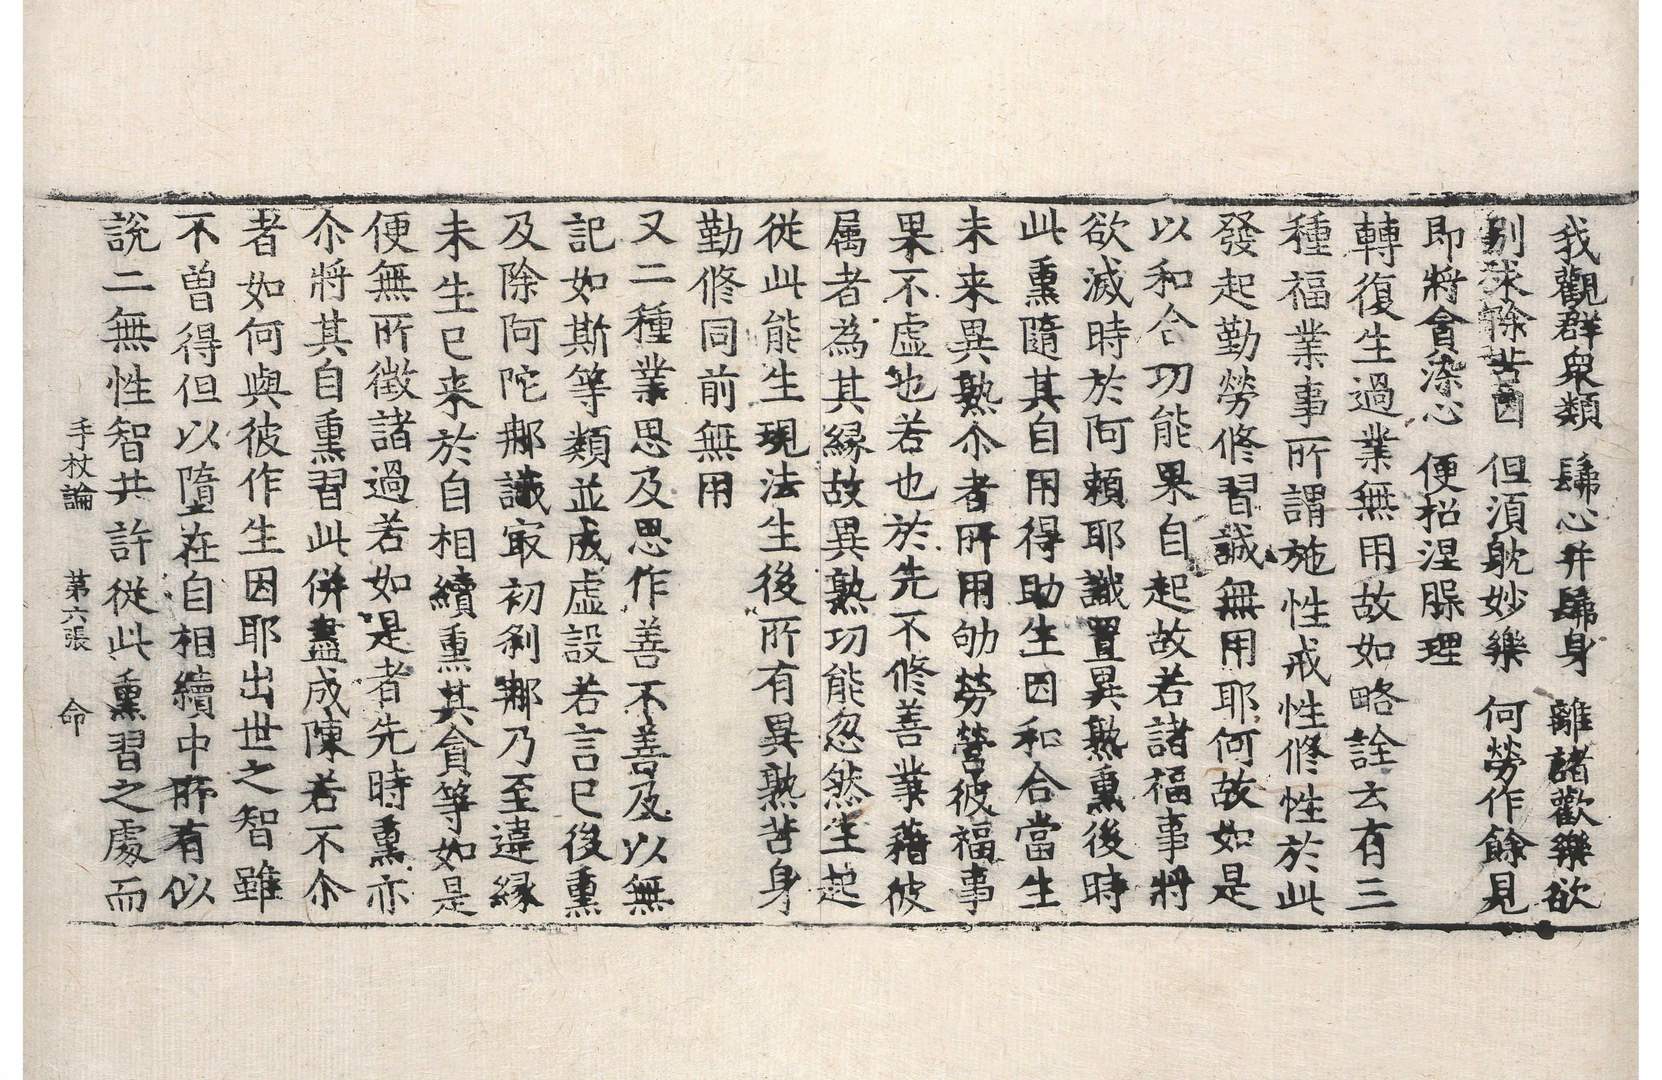 我觀群衆類　歸心并歸身　離諸歡樂欲
別求除苦因　但須躭妙樂　何勞作餘見
即將貪染心　便招涅槃理
轉復生過業無用故如略詮云有三
種福業事所謂施性戒性修性於此
發起勤勞修習誠無用耶何故如是
以和合功能果自起故若諸福事將
欲滅時於阿賴耶識置異熟熏後時
此熏隨其自用得助生因和合當生
未来異熟尒者所用劬勞營彼福事
果不虛也若也於先不修善業藉彼
属者為其緣故異熟功能忽然生起
從此能生現法生後所有異熟苦身
勤修同前無用
又二種業思及思作善不善及以無
記如斯等類並成虛設若言已後熏
及除阿陀那識冣初刹那乃至違緣
未生已来於自相續熏其貪等如是
便無所徵諸過若如是者先時熏亦
尒將其自熏習此併盡成陳若不尒
者如何與彼作生因耶出世之智雖
不曽得但以墮在自相續中所有似
說二無性智共許從此熏習之處而
手杖論　第六張　命